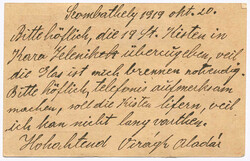 Szombathely 1919 okt. 20.
Bitte höflich, die 19 St. Kisten in
Jelenikott überzugeben, weil
die Has ist mich brennen notwendig
Bitte höflich, telefonis aufmerksam
machen, soll die Kisten lifern, weil
ich kan nicht lang varthen.
Hohachtend Piragh Aladár